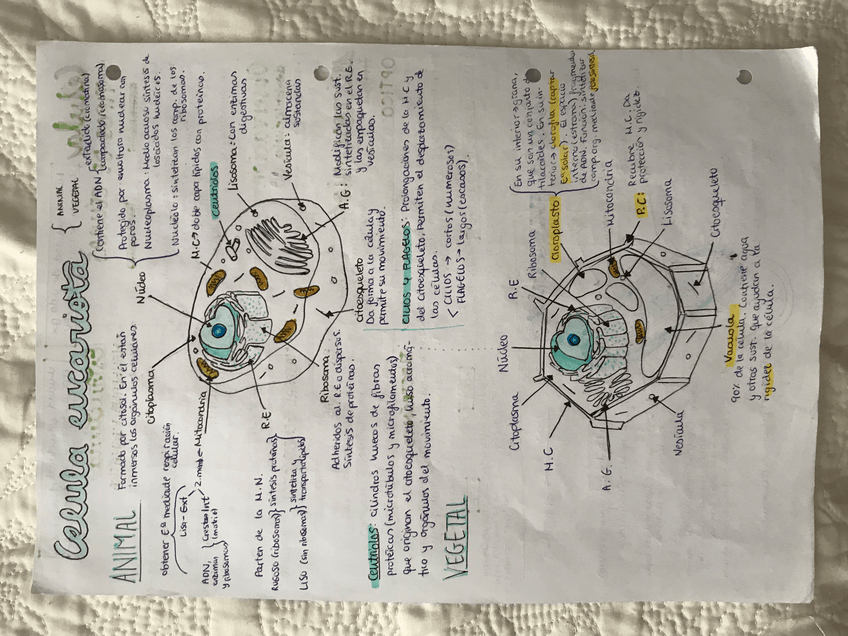 Celula eucariota { ANIMAL
VEGETAL
ANIMAL
Formado por citosol. En él están
inmersos los orgánulos celulares.
Citoplasma
Núcleo
contiene el ADN
extendido (cromatina)
compactado (cromosoma)
Protegido por envoltura nuclear con
poros.
Nucleoplasma: Medio acuoso síntesis de
ácidos nucleicos.
Nucleolo: sintetizan los comp. de los
ribosomas.
M.C → doble capa lípidos con proteínas.
Centriolos
Lisosoma: Con enzimas
digestivas
Vesícula: almacena
sustancias
A.G: Modifican las sust.
sintetizadas en el R.E.
y las empaquetan en
vesículas.
obtener Eª mediante respiración
celular.
Lisa - Ext
Crestas Int
(matriz)
2 mem ← Mitocondria
ADN,
enzimas
y ribosomas
R.E
Parten de la M.N.
Rugoso (ribosomas) } síntesis proteínas
Liso (sin ribosomas) } sintetiza y
transporta lípidos
Ribosoma
Adheridos al R.E o dispersos.
Síntesis de proteínas.
citoesqueleto
Da forma a la célula y
permite su movimiento.
Centriolos: cilindros huecos de fibras
proteicas (microtúbulos y microfilamentos)
que originan el citoesqueleto,
y orgánulos del movimiento.
CILIOS Y FLAGELOS: Prolongaciones de la M.C y
del citoesqueleto. Permiten el desplazamiento de
las células.
< CILIOS → cortos (numerosos)
FLAGELOS → largos (escasos)
VEGETAL
Citoplasma
Núcleo
R.E
Ribosoma
Cloroplasto
En su interior
que son un conjunto de
tilacoides. En su in-
terior → clorofila (captar
Eª solar). El espacio
interno (estroma) fragmentos
de ADN. Función: sintetizar
comp. org. mediante fotosíntesis
Mitocondria
P.C: Recubre M.C. Da
protección y rigidez
Lisosoma
Citoesqueleto
M.C
A.G.
Vesícula
Vacuola
90% de la célula. Contiene agua
y otras sust. que ayudan a la
rigidez de la célula.